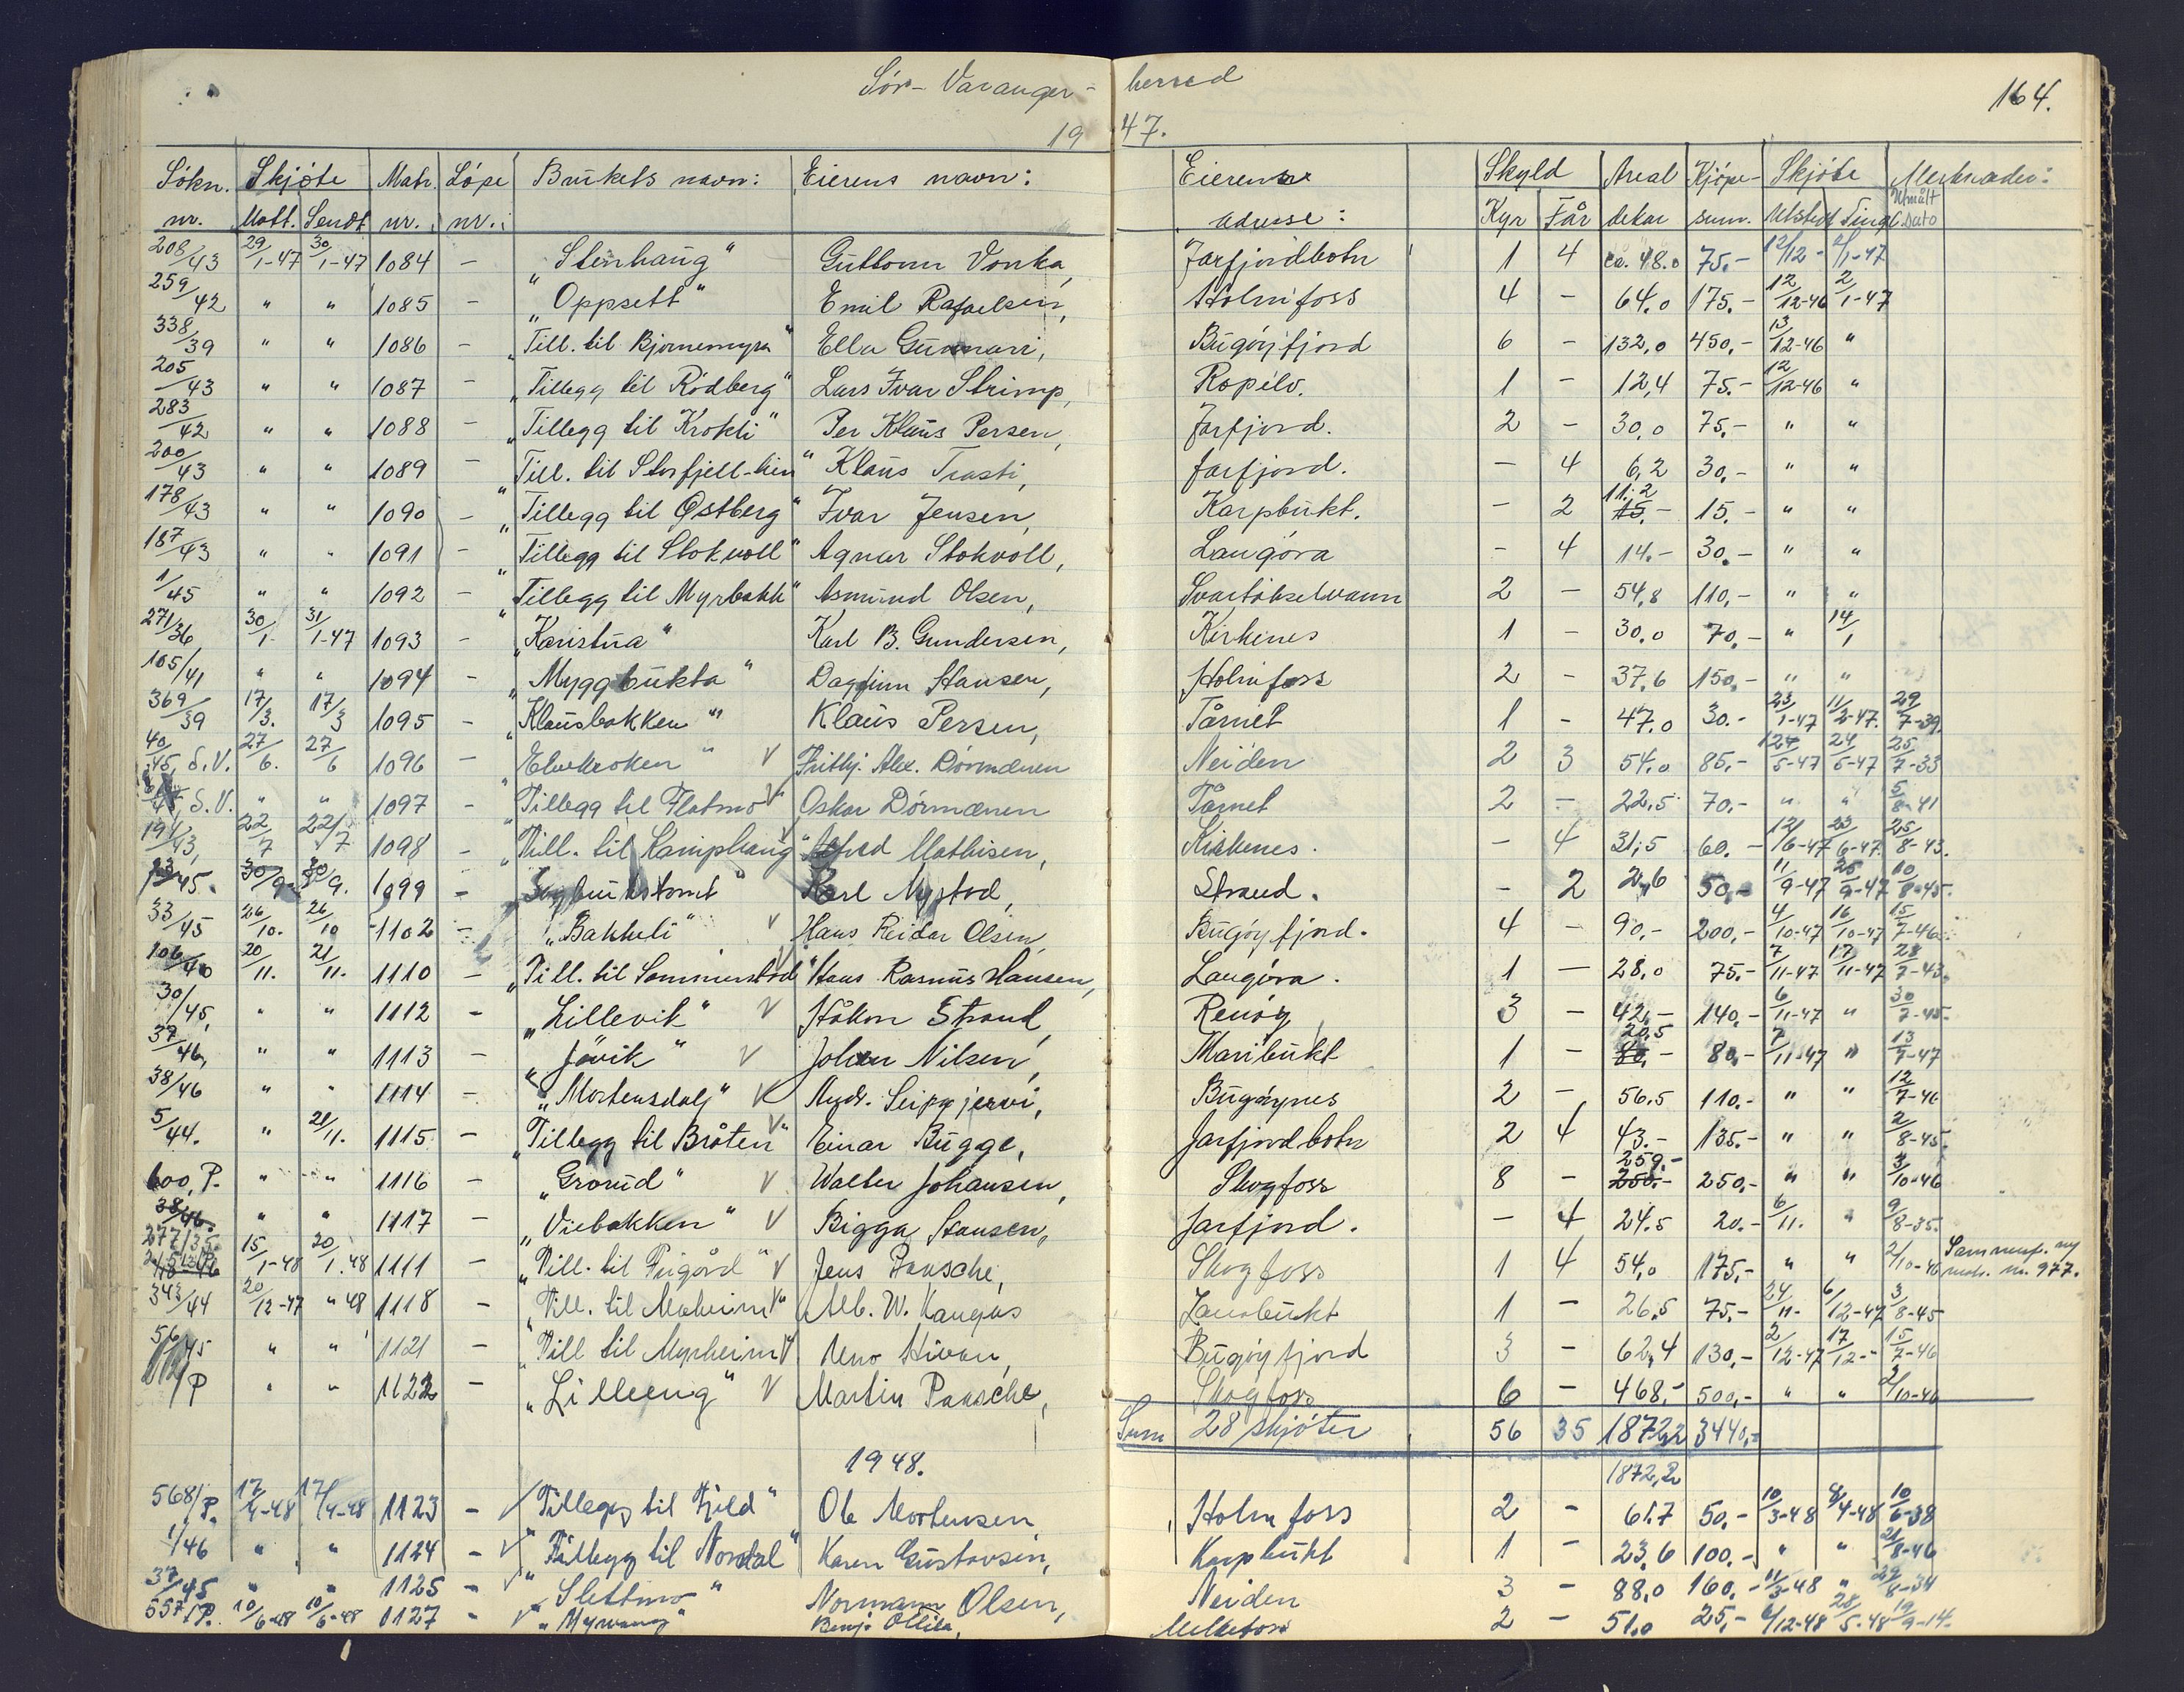 Sør-Varanger- herred
164.
19 47.
Søkn. Skjøte Matr. Løpe Brukets navn: Eierens navn: Eierens Skyld Areal Kjøpe- Skjøte Merknader:
nr. Mott. Sendt nr. nr.: adresse: Kyr Får dekar sum. Utstedt Tingl. Utmålt dato
208/43 29/1-47 30/1-47 1084 - "Stenhaug" Guttorm Vonka, Jarfjordbotn 1 4 ca. 48.0 75.- 12/12 - 2/1-47
259/42 " " 1085 - "Oppsett" Emil Rafaelsen, Holmfoss 4 - 64.0 175.- 12/12-46 2/1-47
338/39 " " 1086 - "Till. til Bjørnemyra" Ella Gunnari, Bugøyfjord 6 - 132,0 450.- 13/12-46 "
205/43 " " 1087 - "Tillegg til Rødberg" Lars Ivar Strimp, Ropelv. 1 - 12,4 75.- 12/12-46 "
283/42 " " 1088 - "Tillegg til Krokli" Per Klaus Persen, Jarfjord. 2 - 30,0 75.- " "
200/43 " " 1089 - "Till. til Storfjell-lien" Klaus Trasti, Jarfjord. - 4 6,2 30.- " "
178/43 " " 1090 - "Tillegg til Østberg" Ivar Jensen, Karpbukt. - 2 11,2 15.- 15.- " "
187/43 " " 1091 - "Tillegg til Stokvoll" Agnar Stokvoll, Langøra - 4 14.- 30.- " "
1/45 " " 1092 - "Tillegg til Myrbakk" Asmund Olsen, Svartakselvann 2 - 54,8 110,- " "
271/36 30/1- 31/1-47 1093 - "Karistua" Karl B. Gundersen, Kirkenes 1 - 30.0 70.- " 14/1
105/41 " " 1094 - "Myggbukta" Dagfinn Hansen, Holmfoss 2 - 37.6 150.- " "
369/39 17/3. 17/3 1095 - "Klausbakken" Klaus Persen, Tårnet 1 - 47.0 30.- 23/1-47 11/2-47. 29/7-39.
40/45, S.V. 27/6. 27/6 1096 - "Elvekroken" V Frithj. Alex. Dørmænen Neiden 2 3 54.0 85.- 24/5-47 24/6-47 25/7-33
S.V. " " 1097 - "Tillegg til Flatmo" V Oskar Dørmænen Tårnet 2 - 22,5 70.- " " 5/8-41
191/43, 22/7 22/7 1098 - "Till. til Kamphaug" Alfred Mathisen, Kirkenes. - 4 31,5 60.- 12/6-47 23/6-47. 25/8-43.
13/45. 30/9- 30/9. 1099 - "Sagbrukstomt" Karl Nystad, Strand. - 2 2,6 50.- 11/9-47 25/9-47 10/8-45.
33/45 26/10. 26/10 1102 - "Bakkeli" V Hans Reidar Olsen, Bugøyfjord. 4 - 90.- 200.- 4/10-47 16/10-47 15/7-46.
106/40 20/11. 21/11. 1110 - "Till. til Sommerstad" Hans Rasmus Hansen, Langøra. 1 - 28.0 75.- 7/11-47 17/11-47 23/7-43.
30/45, " " 1112 - "Lillevik" V Håkon Strand, Renøy 3 - 42.- 140.- 6/11-47 " 30/7-45.
37/46, " " 1113 - "Jøvik" V Johan Nilsen, Maribukt 1 - 20,5 80.- 80.- 7/11-47 " 13/7-47
38/46 " " 1114 - "Mortensdal" V Andr. Seipæjervi, Bugøynes 2 - 56.5 110.- " " 12/7-46
5/44. " 21/11. 1115 - "Tillegg til Bråten" V Einar Bugge, Jarfjordbotn 2 4 43.- 135.- " " 2/8-45.
600, P. " " 1116 - "Groud" V Walter Johansen, Skogfoss 8 - 259.- 250.- 250.- " " 3/10-46
38/46. " " 1117 - "Viebakken" V Bigga Hansen, Jarfjord. - 4 24.5 20.- 6/11. " 9/8-35.
277/35. 15/1-48 20/1.48 1111 "Till. til Furgård" V Jens Paasche, Skogfoss 1 4 54.0 175.- " " 2/10-46 Sammenf. ny matr. nr. 977.
343/44 20/12-47 " 48 1118 - "Till. til Moheim" V Alb. W. Kangas Lanabukt 1 - 26.5 75.- 24/11- 6/12-47 3/8-45
56/45 " " 1121 - "Till til Myrheim" V Uno Hivan, Bugøyfjord 3 - 62,4 130,- 2/12-47 17/12-" 15/7-46
/P " " 1122 - "Lilleeng" V Martin Paasche, Skogfoss 6 - 468.- 500.- " " 2/10-46
Sum 28 skjøter 56 35 1872,2 3440.-
1948. 1872,2
568/P. 17/4-48 17/4-48 1123 - V "Tillegg til Fjeld" Ole Mortensen, Holmfoss 2 - 61.7 50.- 10/3-48 8/4-48 10/6-38
1/46 " " 1124 - V "Tillegg til Nordal" Karen Gustavsen, Karpbukt 1 - 23,6 100.- " " 21/8-46
37/45 " " 1125 - V "Slettmo" Normann Olsen, Neiden 3 - 88,0 160.- 11/3-48 " 29/8-34
557/P. 10/6-48 10/6-48 1127 - V "Myrvang" Benj. Ollila, Melkefoss 2 - 51.0 25,- 6/12-48 28/5-48 19/9-14.